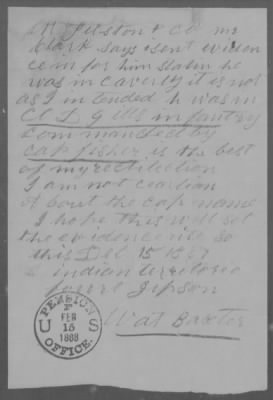 Clark Says i sent eviden
ce in for him Staten he
was in caverly it is not
as I in tended h was in
Co D 9 ills in fantry
Com manded by
cap fisher is the best
of my rectilection
I am not ceartian
A bout the cap name
I hope this will set
the evidence rite so
this Dec 15 1887
indian territoria
Gipson
Wat Baxter
PENSION
U S
FEB
15
1888
OFFICE.